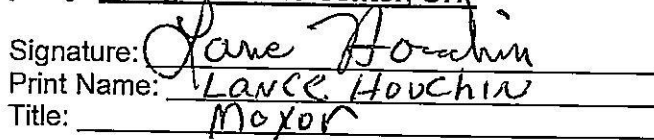 Signature: Lance Houchin
Print Name: Lance Houchin
Title: Mayor